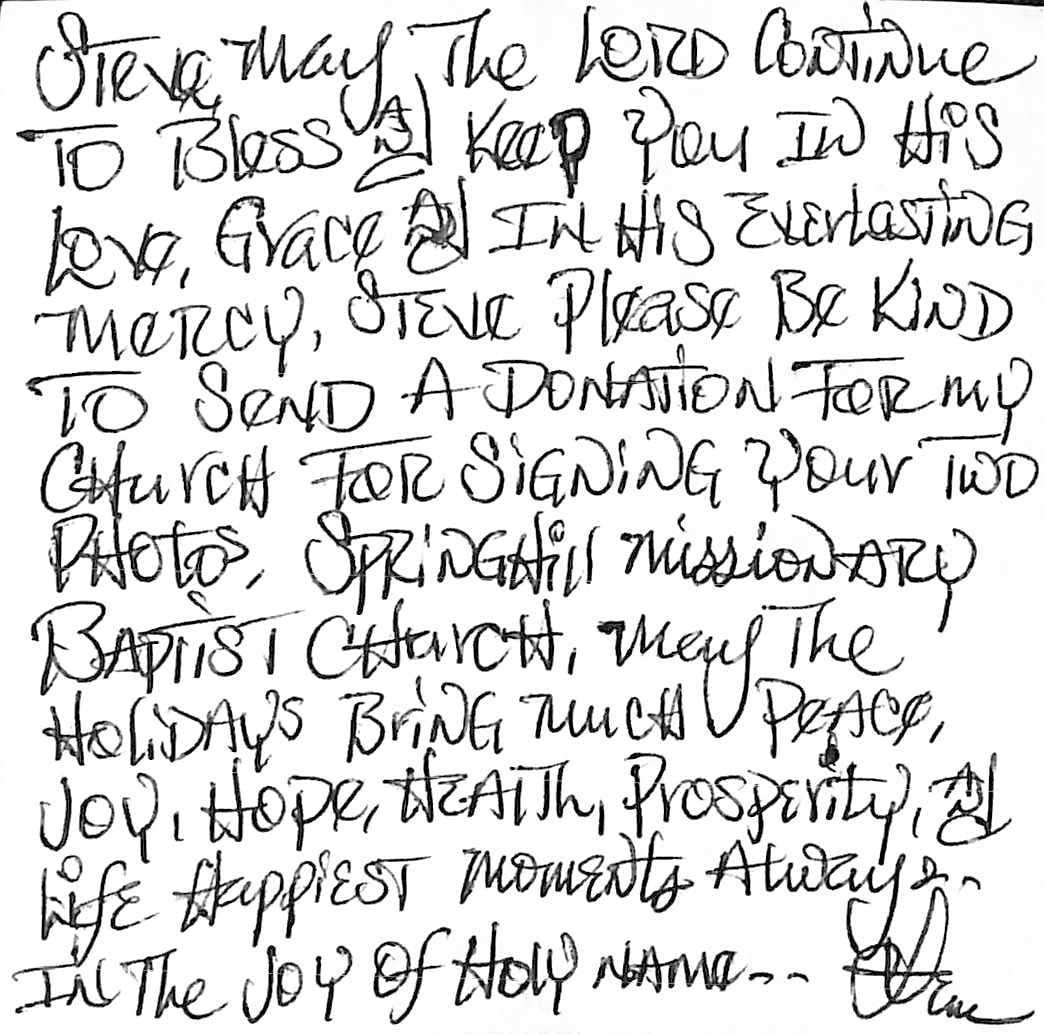 Steve, May The Lord Continue
To Bless And Keep You In His
Love, Grace And In His Everlasting
Mercy, Steve Please Be Kind
To Send A Donation For my
Church For Signing Your Two
Photos, SpringHill missionary
Baptist Church, May The
Holidays Bring Much Peace,
Joy, Hope, Health, Prosperity, And
Life Happiest Moments Always..
In The Joy Of Holy Name--